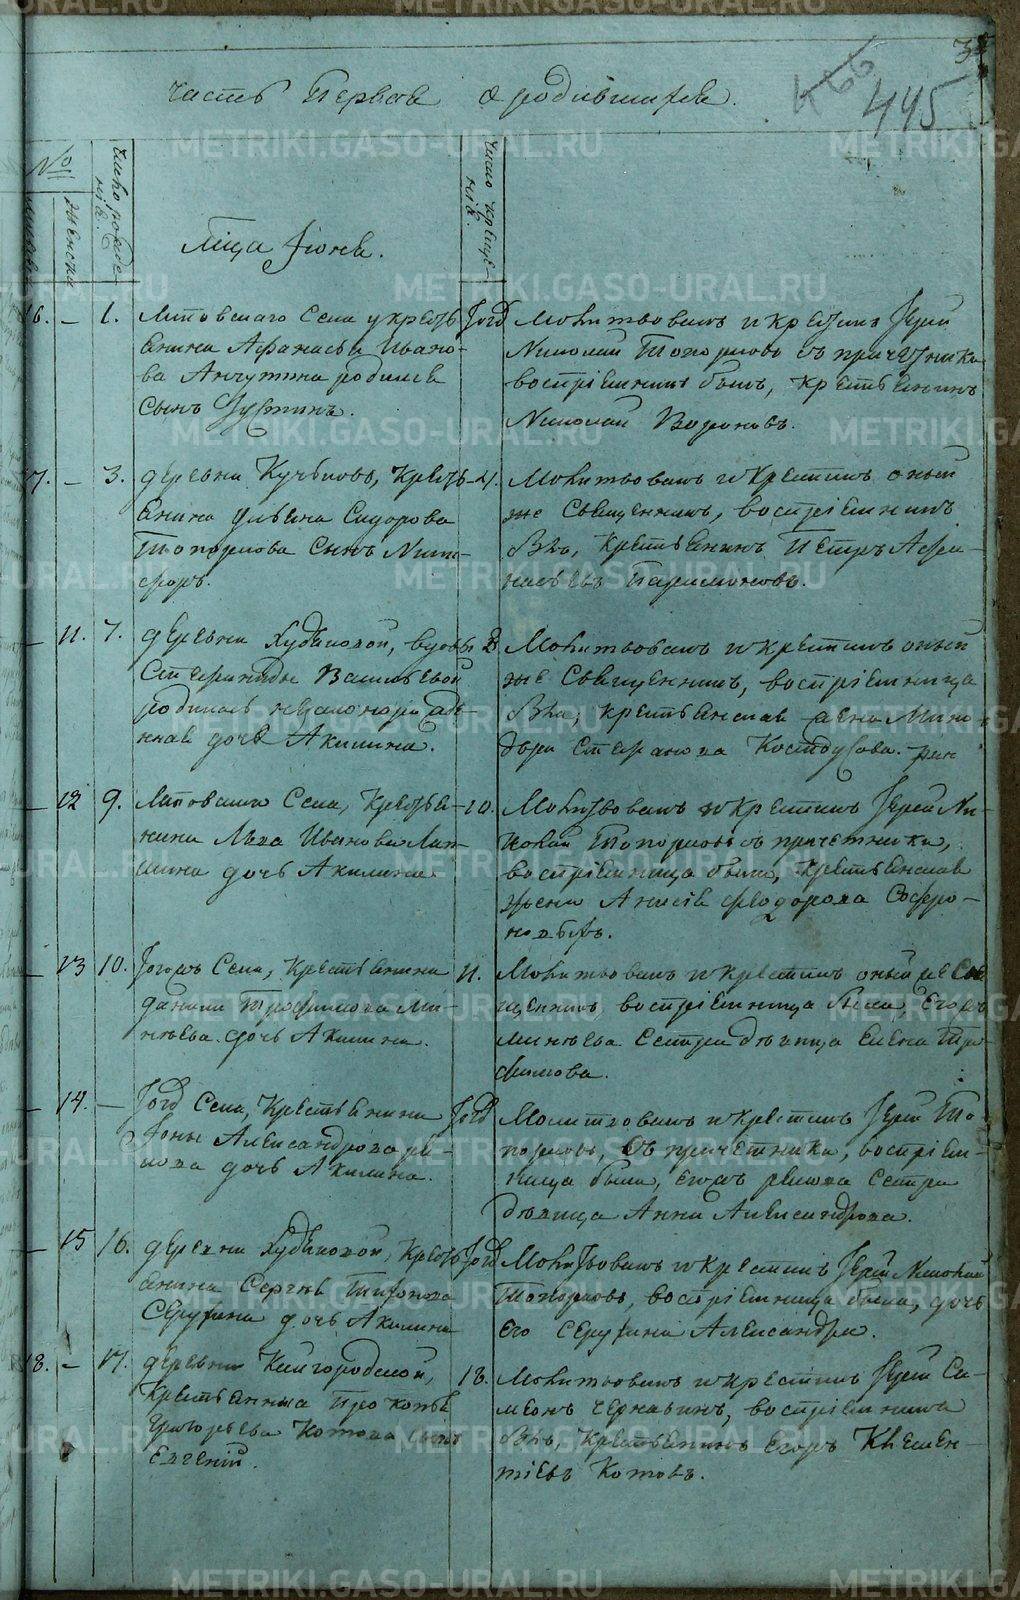 445
Часть Первая о родившихся.
№
женска
число рожде-
нія.
число креще-
нія.
М͠ца Іюня.
16. – 1. Липовскаго Села у кресть-
янина Афанасья Ивано-
ва Анчутина родился
сынъ Іустинъ.
Тогд Молитвовалъ и крестилъ Іерей
Николай Топорковъ съ причетника
воспріемникъ былъ, крестьянинъ
Николай Вороновъ.
17. – 3. деревни Кучьковъ, Кресть-
янина Ульяна Сидорова
Топоркова сынъ Ники-
форъ.
4. Молитвовалъ и крестилъ оный
же Священникъ, воспріемникъ
былъ, крестьянинъ Петръ Афа-
насьевъ Паримоновъ.
– 11. 7. деревни Худяковой, вдовы
Степаниды Васильевой
родилась незаконорожде-
нная дочь Акилина.
8 Молитвовалъ и крестилъ оный
же Священникъ, воспріемница
была, крестьянская жена
Стефанова
– 12 9. Липовскаго Села, Кресть-
янина Льва Иванова Лап-
шина дочь Акилина.
10. Молитвовалъ и крестилъ Іерей Ни-
колай Топорковъ съ причетника,
воспріемница была, крестьянская
жена Анисія Феодорова
– 13 10. Тогожъ Села, Крестьянина
Данила Трофимова Ми-
нѣева дочь Акилина.
11. Молитвовалъ и крестилъ оный же Свя
щенникъ, воспріемница была, Егожъ
Минѣева Сестра дѣвица Елена Тро-
фимова.
– 14. – Тогд Села, Крестьянина
Іоны Александрова
дочь Акилина.
Тогд Молитвовалъ и крестилъ Іерей То-
порковъ, съ причетника, воспріем-
ница была, егожъ Сестра
дѣвица Анна Александрова.
– 15 16. деревни Худяковой, Кресть-
янина Сергѣя Тифонова
Серухина дочь Акилина
Тогд Молитвовалъ и крестилъ Іерей Николай
Топорковъ, воспріемница была, дочь
его Серухина Александра.
18. – 17. деревни Кайгородской,
Крестьянина Прокопья
Григорьева Котова сынъ
Евгеній.
18. Молитвовалъ и крестилъ Іерей Си-
меонъ Чернавинъ, воспріемникъ
былъ, Крестьянинъ Егоръ Клемен-
тіевъ Котовъ.
METRIKI.GASO-URAL.RU